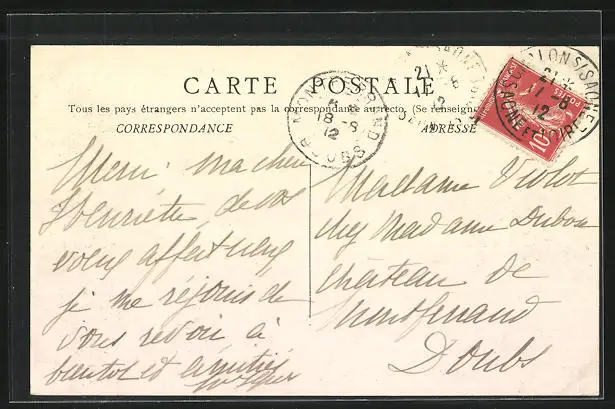 CARTE POSTALE
Tous les pays étrangers n'acceptent pas la correspondance au recto. (Se renseigner
CORRESPONDANCE
ADRESSE
18 - 8
12
DOUBS
21 *
12
CHALON S/SAONE
21 *
11 - 8
12
SAONE ET LOIRE
POSTES
10
Merci ma chère
Henriette, de vos
voeux affectueux
je me réjouis de
vous revoir à
bientot et amitiés
Madame Violot
chez Madame Dubou
château de
Montferrand
Doubs